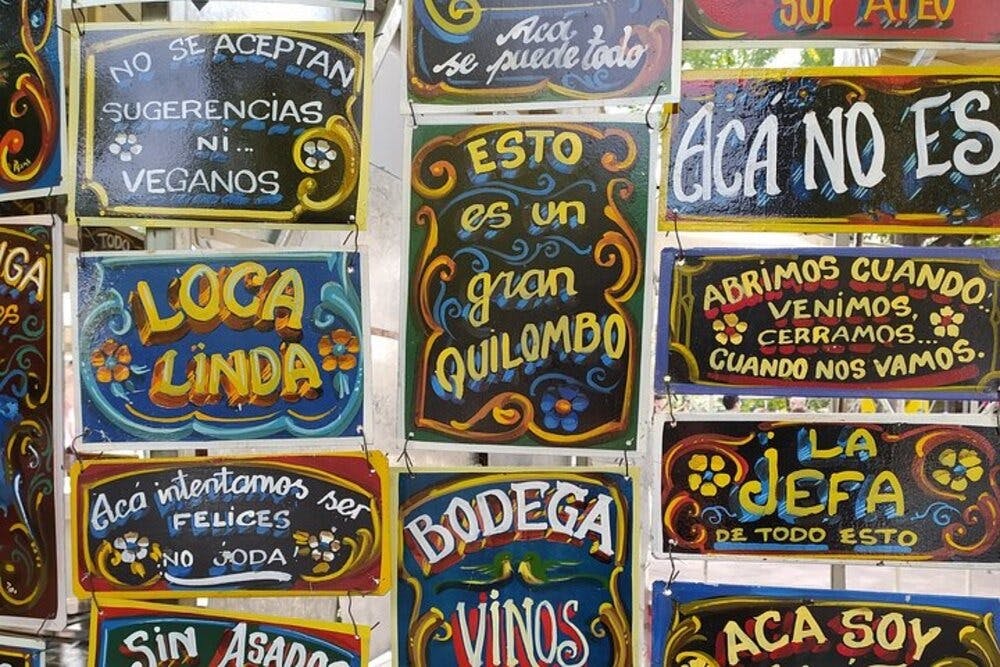 NO SE ACEPTAN
SUGERENCIAS
NI...
VEGANOS
Acá
se puede todo
SOY ATEO
ACÁ NO ES
ESTO
es un
gran
QUILOMBO
TODO
LOCA
LINDA
ABRIMOS CUANDO
VENIMOS,
CERRAMOS...
CUANDO NOS VAMOS.
Acá intentamos ser
FELICES
NO JODA!
BODEGA
VINOS
LA
JEFA
DE TODO ESTO
SIN ASADOS
ACA SOY